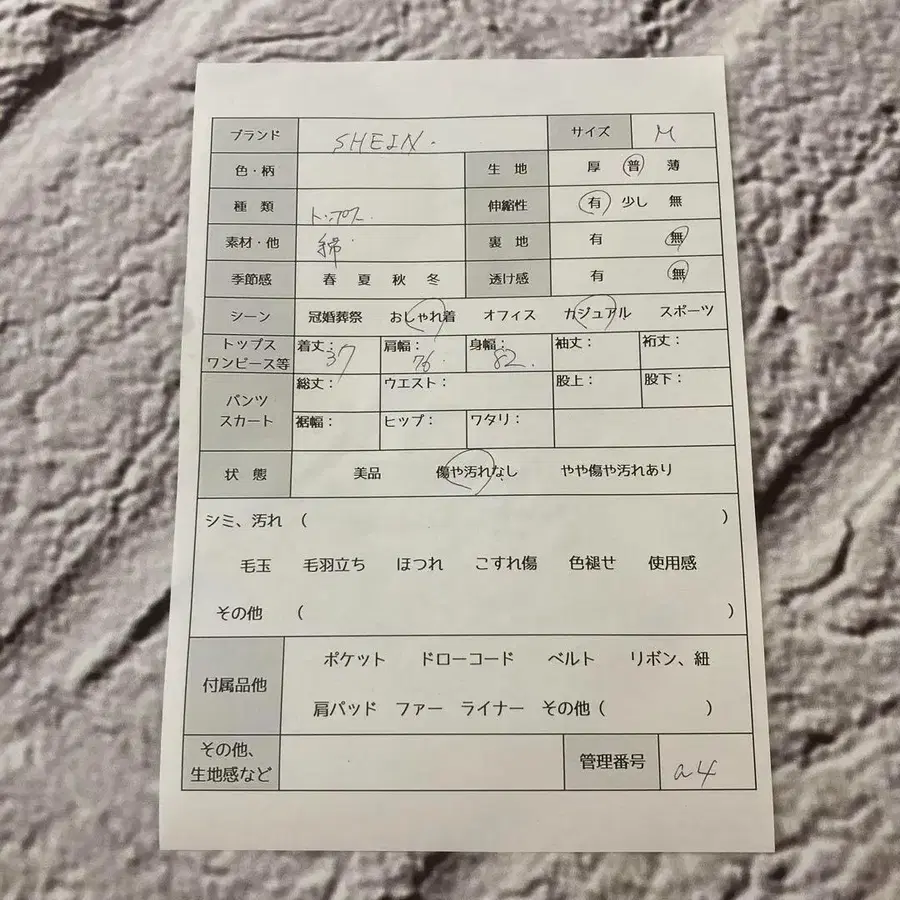 ブランド SHEIN. サイズ M
色・柄 生 地 厚 普 薄
種 類 トップス. 伸縮性 有 少し 無
素材・他 綿 裏 地 有 無
季節感 春 夏 秋 冬 透け感 有 無
シーン 冠婚葬祭 おしゃれ着 オフィス カジュアル スポーツ
トップス ワンピース等 着丈: 37 肩幅: 76 身幅: 82. 袖丈: 裄丈:
パンツ スカート 総丈: ウエスト: 股上: 股下:
裾幅: ヒップ: ワタリ:
状 態 美品 傷や汚れなし やや傷や汚れあり
シミ、汚れ ( )
毛玉 毛羽立ち ほつれ こすれ傷 色褪せ 使用感
その他 ( )
付属品他 ポケット ドローコード ベルト リボン、紐
肩パッド ファー ライナー その他 ( )
その他、 生地感など 管理番号 a4